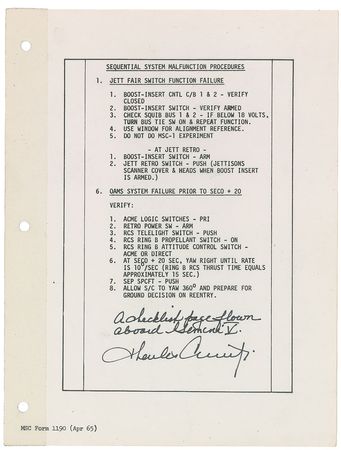 SEQUENTIAL SYSTEM MALFUNCTION PROCEDURES
1. JETT FAIR SWITCH FUNCTION FAILURE
1. BOOST-INSERT CNTL C/B 1 & 2 - VERIFY
CLOSED
2. BOOST-INSERT SWITCH - VERIFY ARMED
3. CHECK SQUIB BUS 1 & 2 - IF BELOW 18 VOLTS,
TURN BUS TIE SW ON & REPEAT FUNCTION.
4. USE WINDOW FOR ALIGNMENT REFERENCE.
5. DO NOT DO MSC-1 EXPERIMENT
- AT JETT RETRO -
1. BOOST-INSERT SWITCH - ARM
2. JETT RETRO SWITCH - PUSH (JETTISONS
SCANNER COVER & HEADS WHEN BOOST INSERT
IS ARMED.)
6. OAMS SYSTEM FAILURE PRIOR TO SECO + 20
VERIFY:
1. ACME LOGIC SWITCHES - PRI
2. RETRO POWER SW - ARM
3. RCS TELELIGHT SWITCH - PUSH
4. RCS RING B PROPELLANT SWITCH - ON
5. RCS RING B ATTITUDE CONTROL SWITCH -
ACME OR DIRECT
6. AT SECO + 20 SEC, YAW RIGHT UNTIL RATE
IS 10°/SEC (RING B RCS THRUST TIME EQUALS
APPROXIMATELY 15 SEC.)
7. SEP SPCFT - PUSH
8. ALLOW S/C TO YAW 360° AND PREPARE FOR
GROUND DECISION ON REENTRY.
A checklist page flown
aboard Gemini V.
Charles Conrad Jr.
MSC Form 1190 (Apr 65)